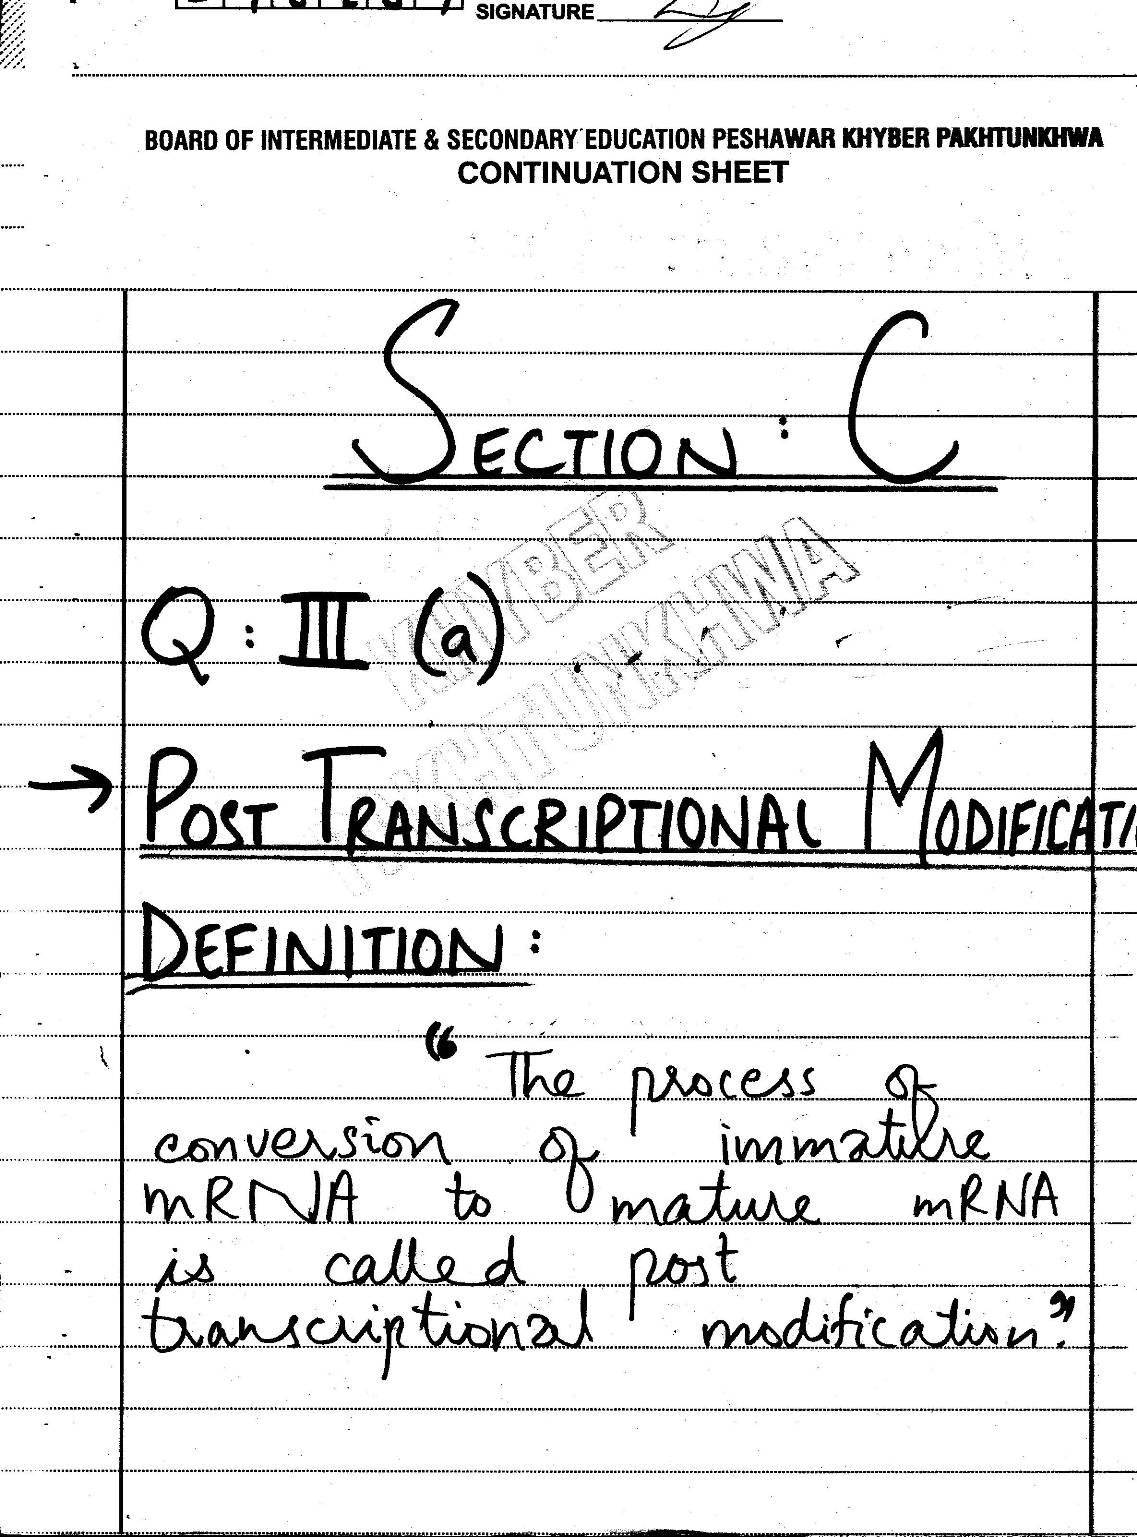 SIGNATURE
BOARD OF INTERMEDIATE & SECONDARY EDUCATION PESHAWAR KHYBER PAKHTUNKHWA
CONTINUATION SHEET
SECTION : C
KHYBER
Q : III (a)
→ POST TRANSCRIPTIONAL MODIFICATI
DEFINITION :
“ The process of
conversion of immature
mRNA to mature mRNA
is called post
transcriptional modification.”